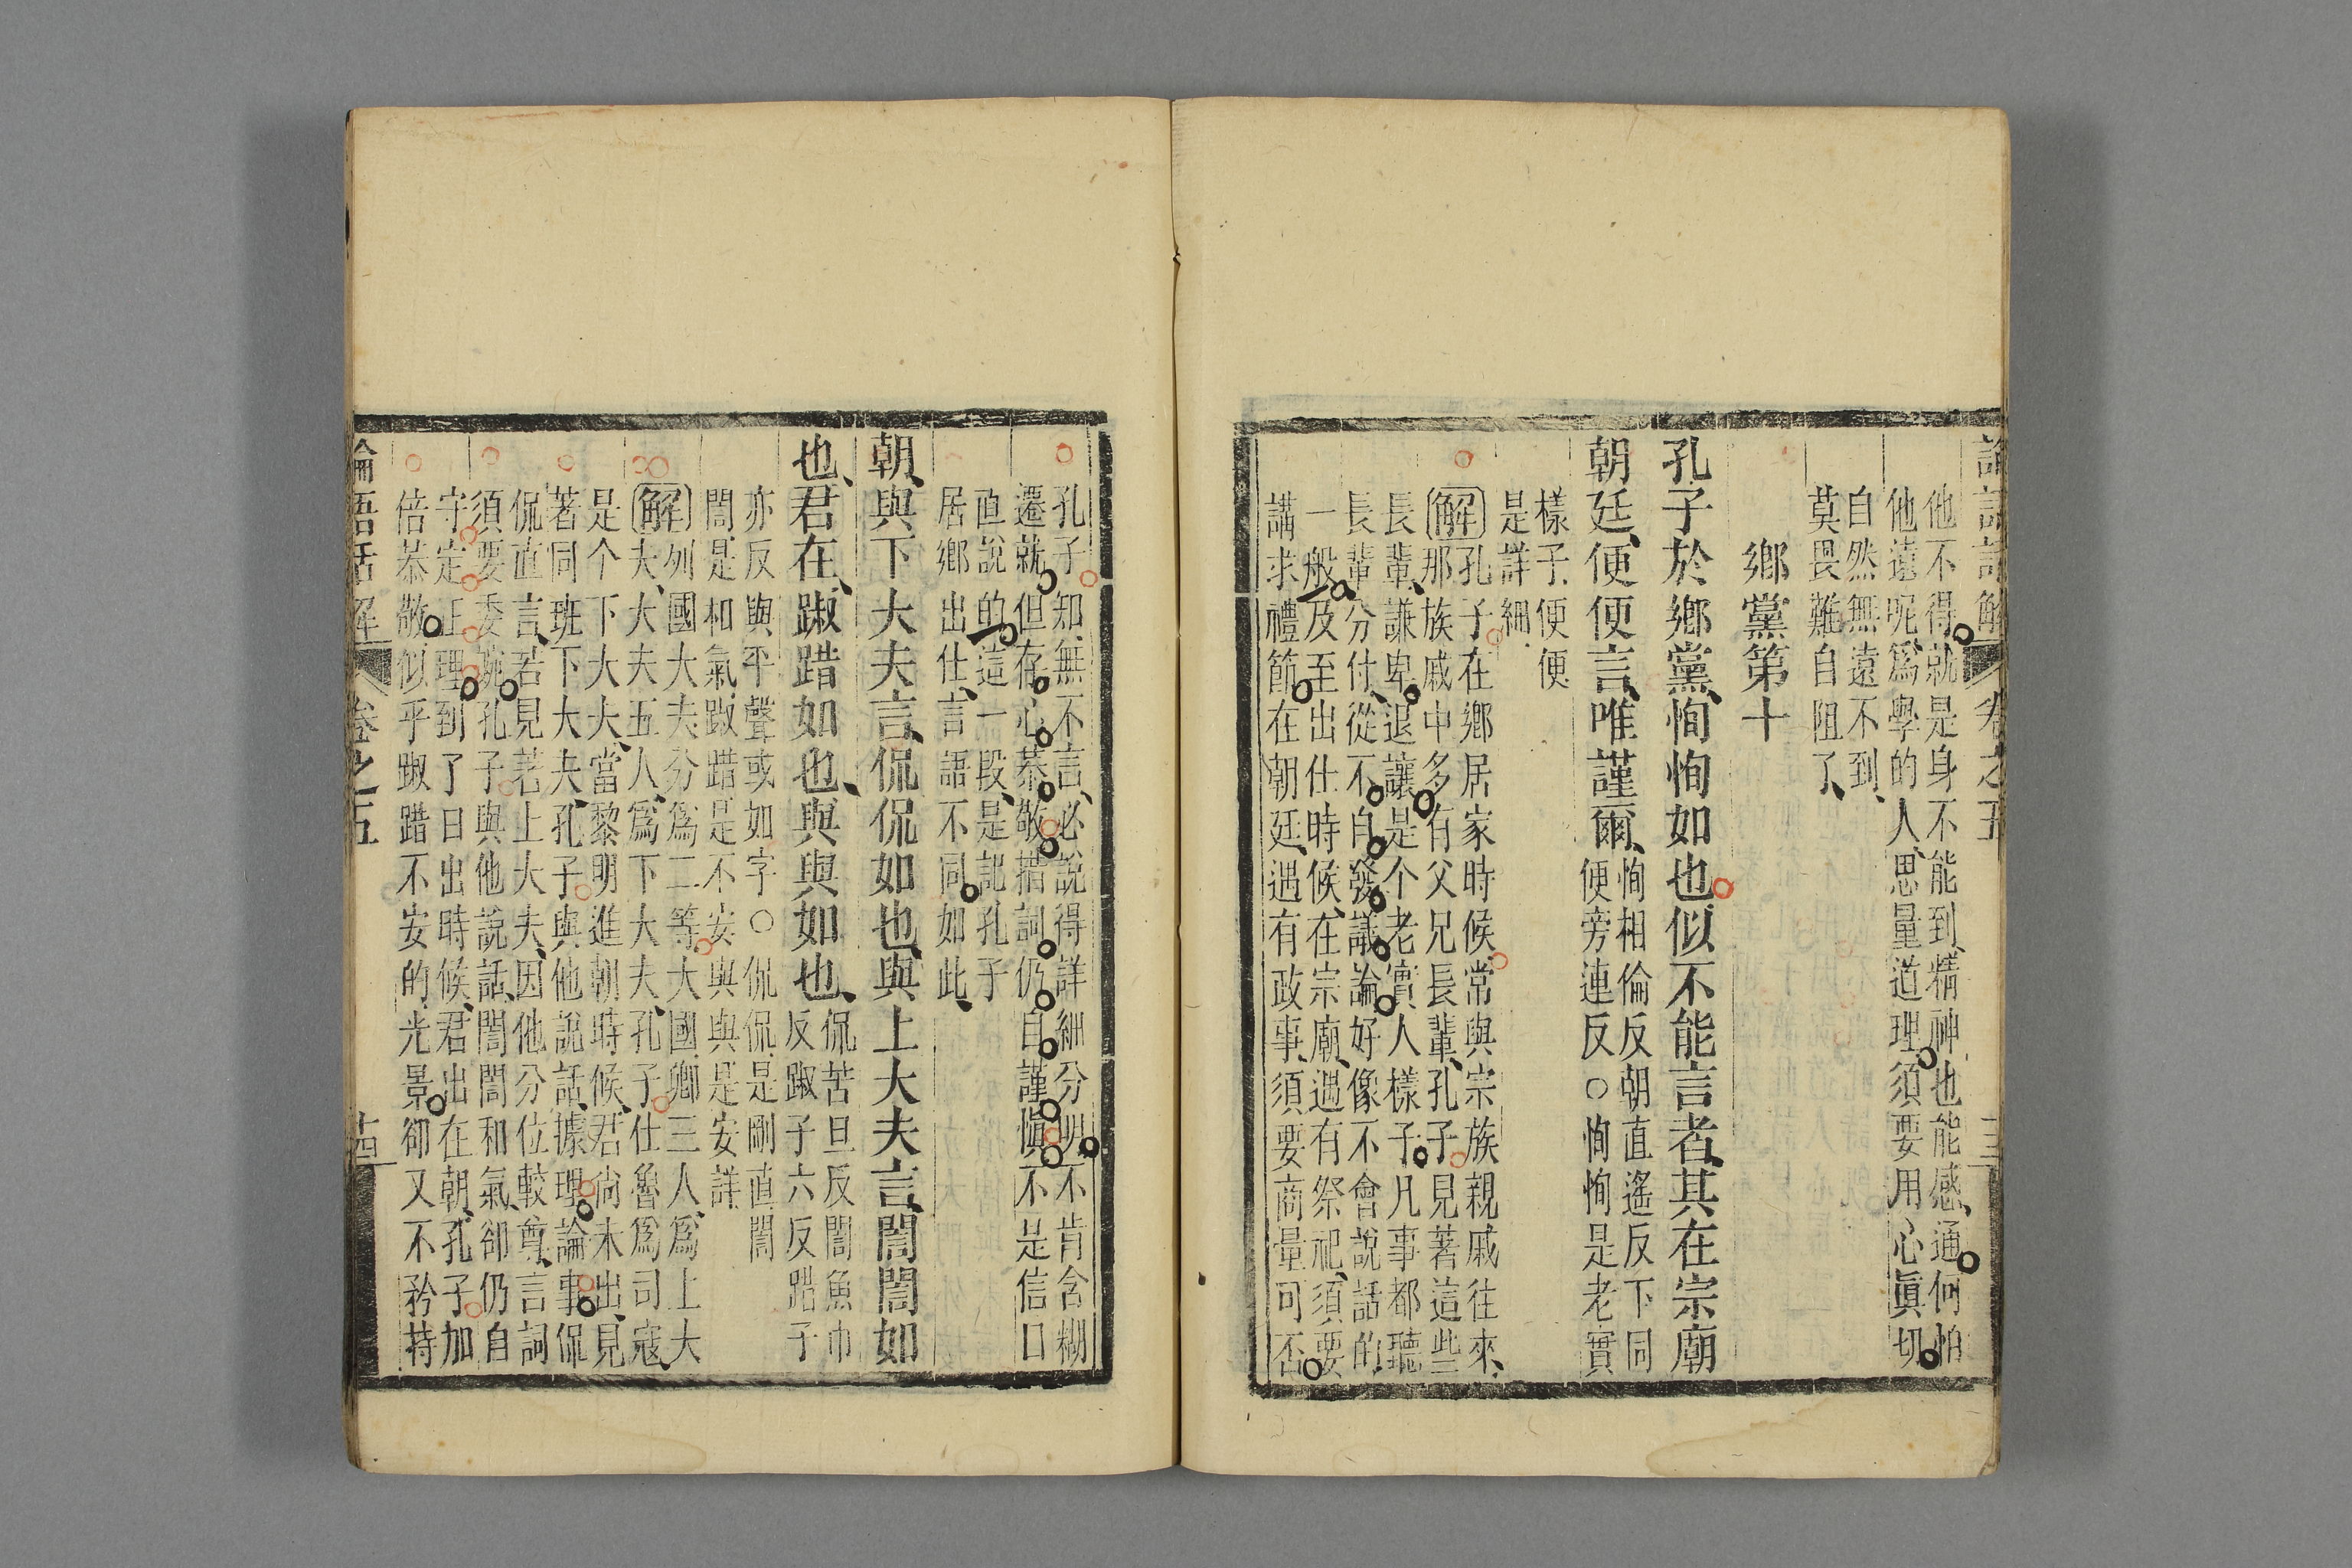 卷之五
他不得就是身不能到、精神也能感、通何怕
他遠呢、爲學的人、思量道理、須要用心眞切
自然無遠不到、
莫畏難自阻了、
鄉黨第十
孔子於鄉黨、恂恂如也、似不能言者、其在宗廟
朝廷、便便言、唯謹爾、
恂相倫反朝直遙反下同
便旁連反○恂恂是老實
樣子便便
是詳細
解孔子在鄉居家時候、常與宗族親戚往來、
那族戚中多有父兄長輩、孔子見著這些
長輩、謙卑退讓、是个老實人樣子、凡事都聽
長輩分付、從不自發議論、好像不會說話的
一般、及至出仕時候、在宗廟、遇有祭祀、須要
講求禮節、在朝廷、遇有政事、須要商量可否
孔子知無不言、必說得詳細分明、不肯含糊
遷就、但存心恭敬、措詞仍自謹愼、不是信口
直說的、這一段、是記孔子
居鄉出仕、言語不同如此、
朝、與下大夫言、侃侃如也、與上大夫言、誾誾如
也、君在、踧踖如也、與與如也、
侃苦旦反誾魚巾
反踧子六反踖子
亦反與平聲或如字○侃侃是剛直誾
誾是和氣、踧踖是不安與與是安詳
解列國大夫分爲二等、大國卿三人、爲上大
夫、大夫五人、爲下大夫、孔子仕魯爲司寇、
是个下大夫、當黎明進朝時候、君尚未出、見
著同班下大夫、孔子與他說話、據理論事、侃
侃直言、若見著上大夫、因他分位較尊、言詞
須要委婉、孔子與他說話、誾誾和氣、卻仍自
守定正理、到了日出時候、君出在朝、孔子加
倍恭敬、似乎踧踖不安的光景、卻又不矜持
論語話解
卷之五
十四